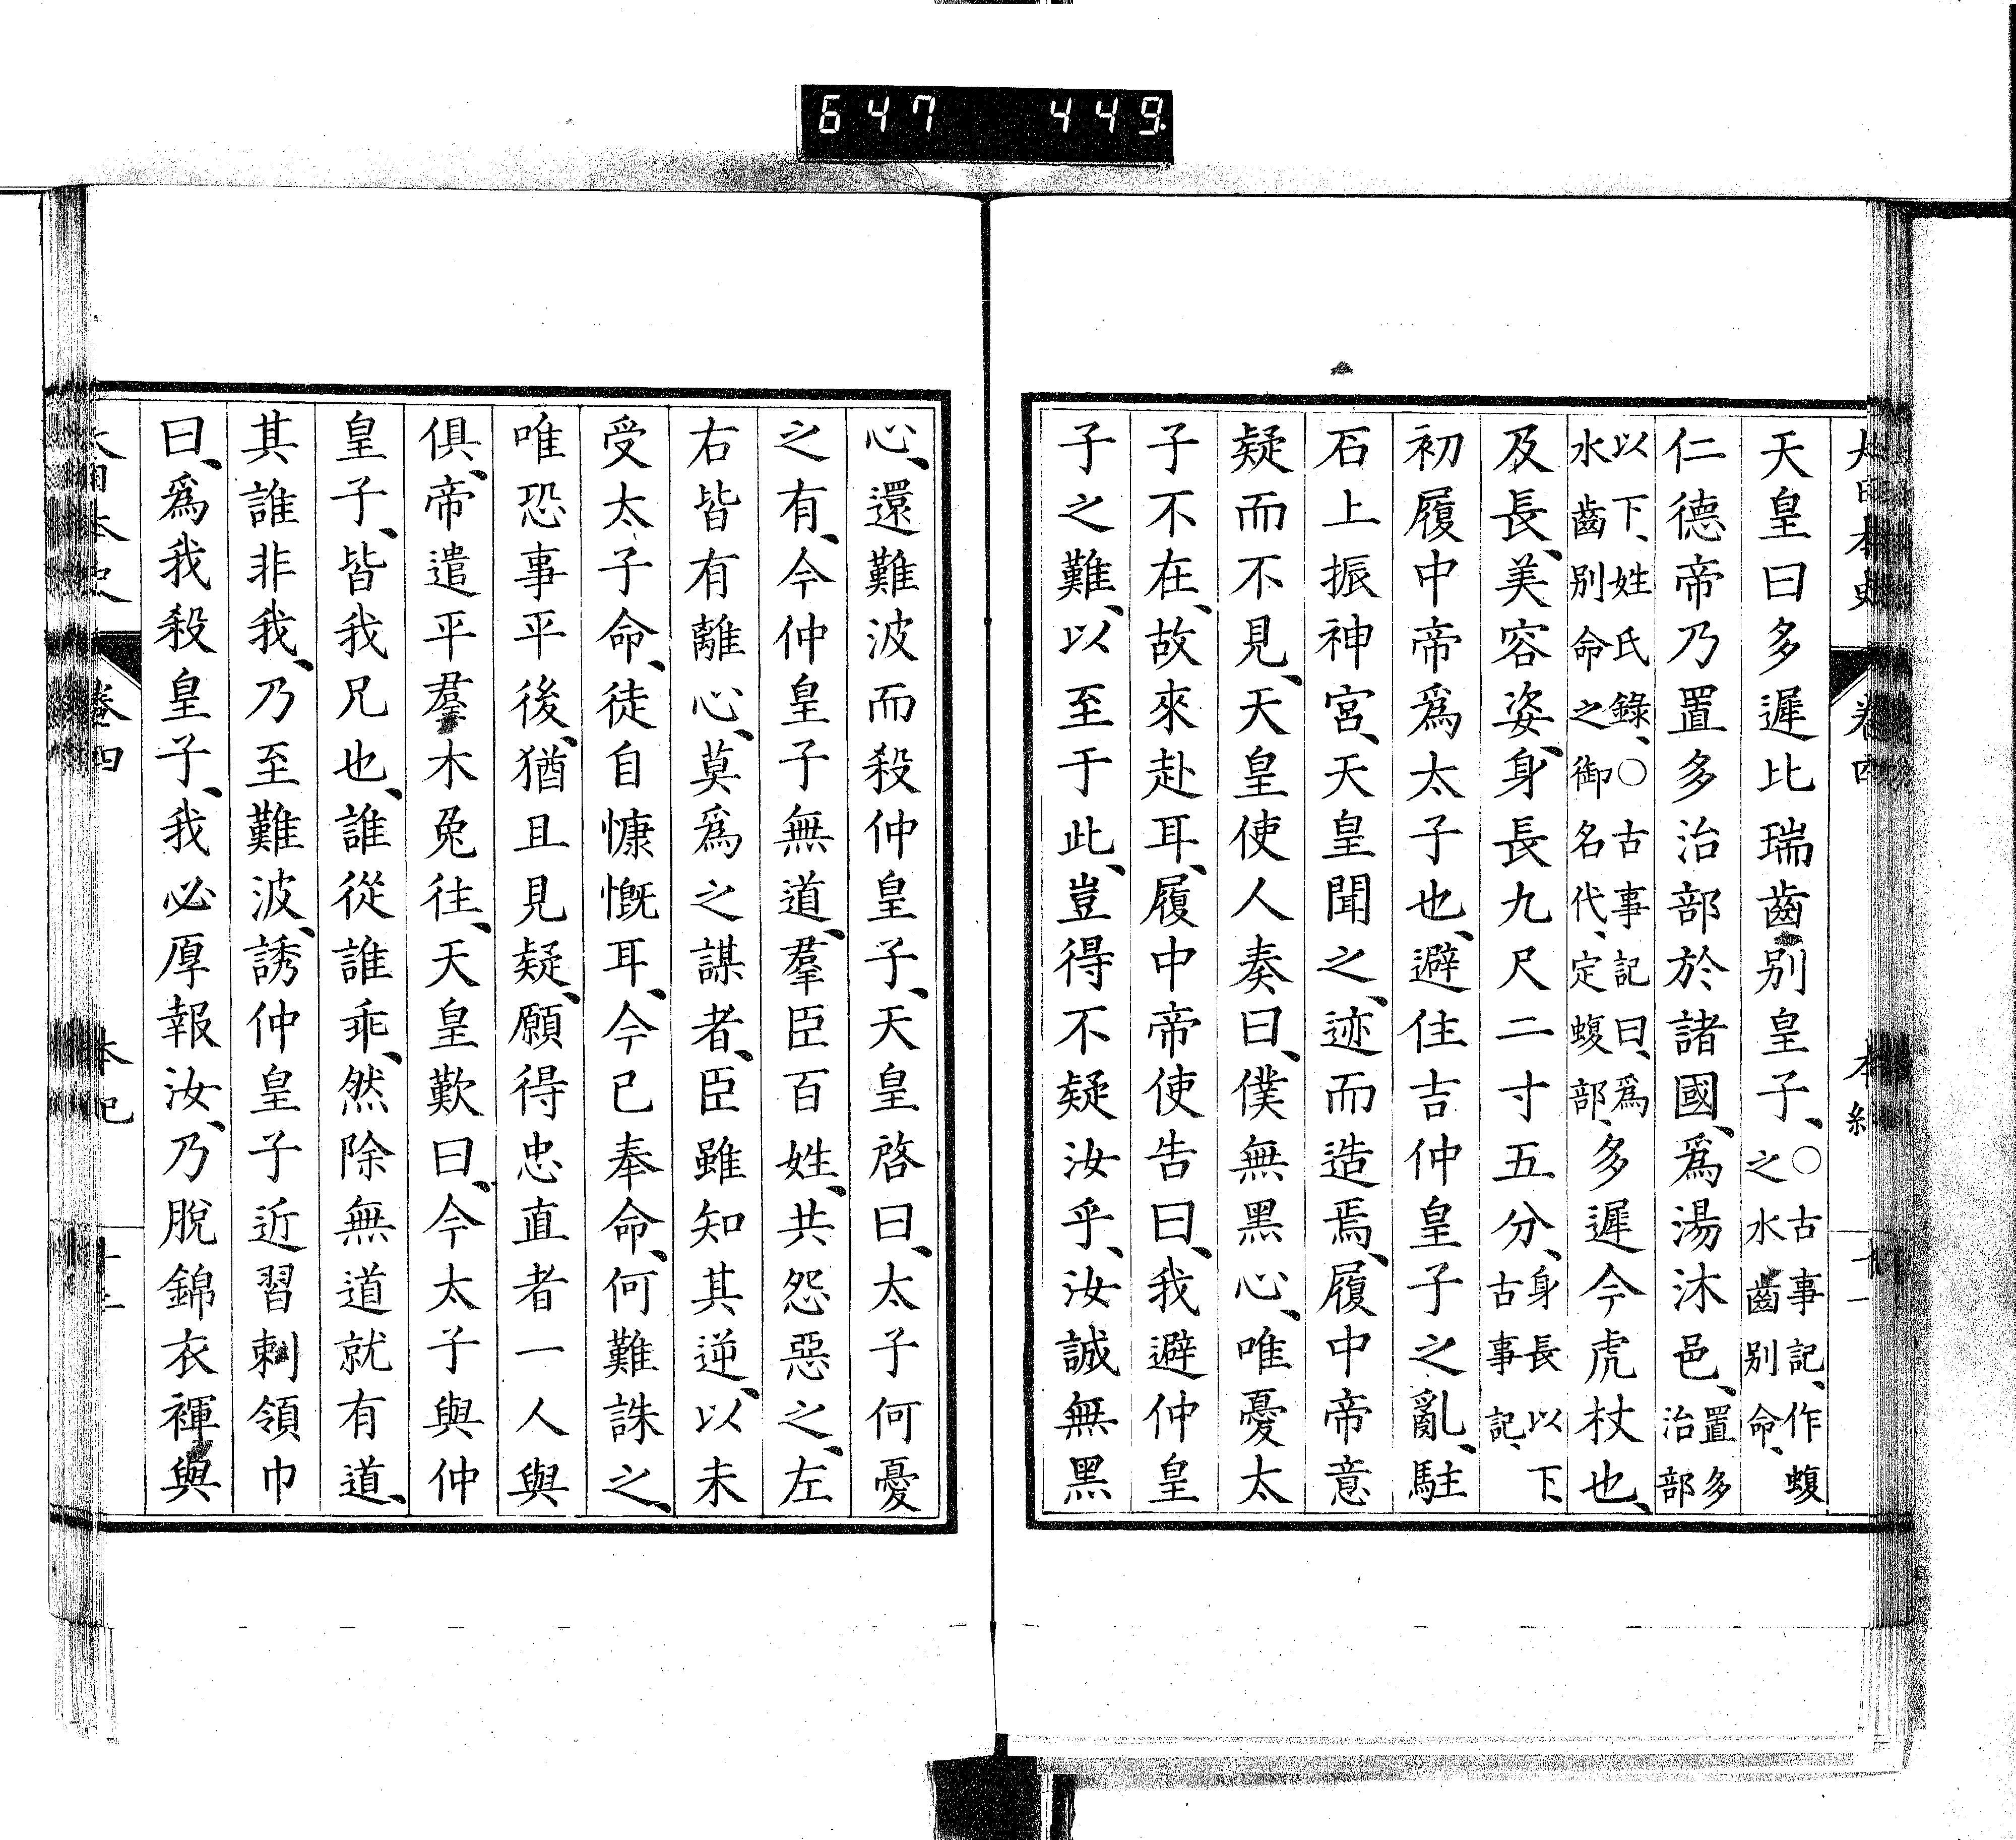 647 449.
大日本史 卷四 本紀 十一
天皇曰多遲比瑞齒別皇子、○古事記、作蝮之水齒別命、
仁德帝乃置多治部於諸國、爲湯沐邑、置多治部
以下、姓氏錄、○古事記曰、爲水齒別命之御名代、定蝮部、多遲今虎杖也、
及長、美容姿、身長九尺二寸五分、身長以下、古事記、
初履中帝爲太子也、避住吉仲皇子之亂、駐
石上振神宮、天皇聞之、迹而造焉、履中帝意
疑而不見、天皇使人奏曰、僕無黑心、唯憂太
子不在、故來赴耳、履中帝使告曰、我避仲皇
子之難、以至于此、豈得不疑汝乎、汝誠無黑
心、還難波而殺仲皇子、天皇啓曰、太子何憂
之有、今仲皇子無道、羣臣百姓、共怨惡之、左
右皆有離心、莫爲之謀者、臣雖知其逆、以未
受太子命、徒自慷慨耳、今已奉命、何難誅之、
唯恐事平後、猶且見疑、願得忠直者一人與
俱、帝遣平羣木兔往、天皇歎曰、今太子與仲
皇子、皆我兄也、誰從誰乖、然除無道就有道、
其誰非我、乃至難波、誘仲皇子近習刺領巾
曰、爲我殺皇子、我必厚報汝、乃脫錦衣褌與
大日本史 卷四 本紀